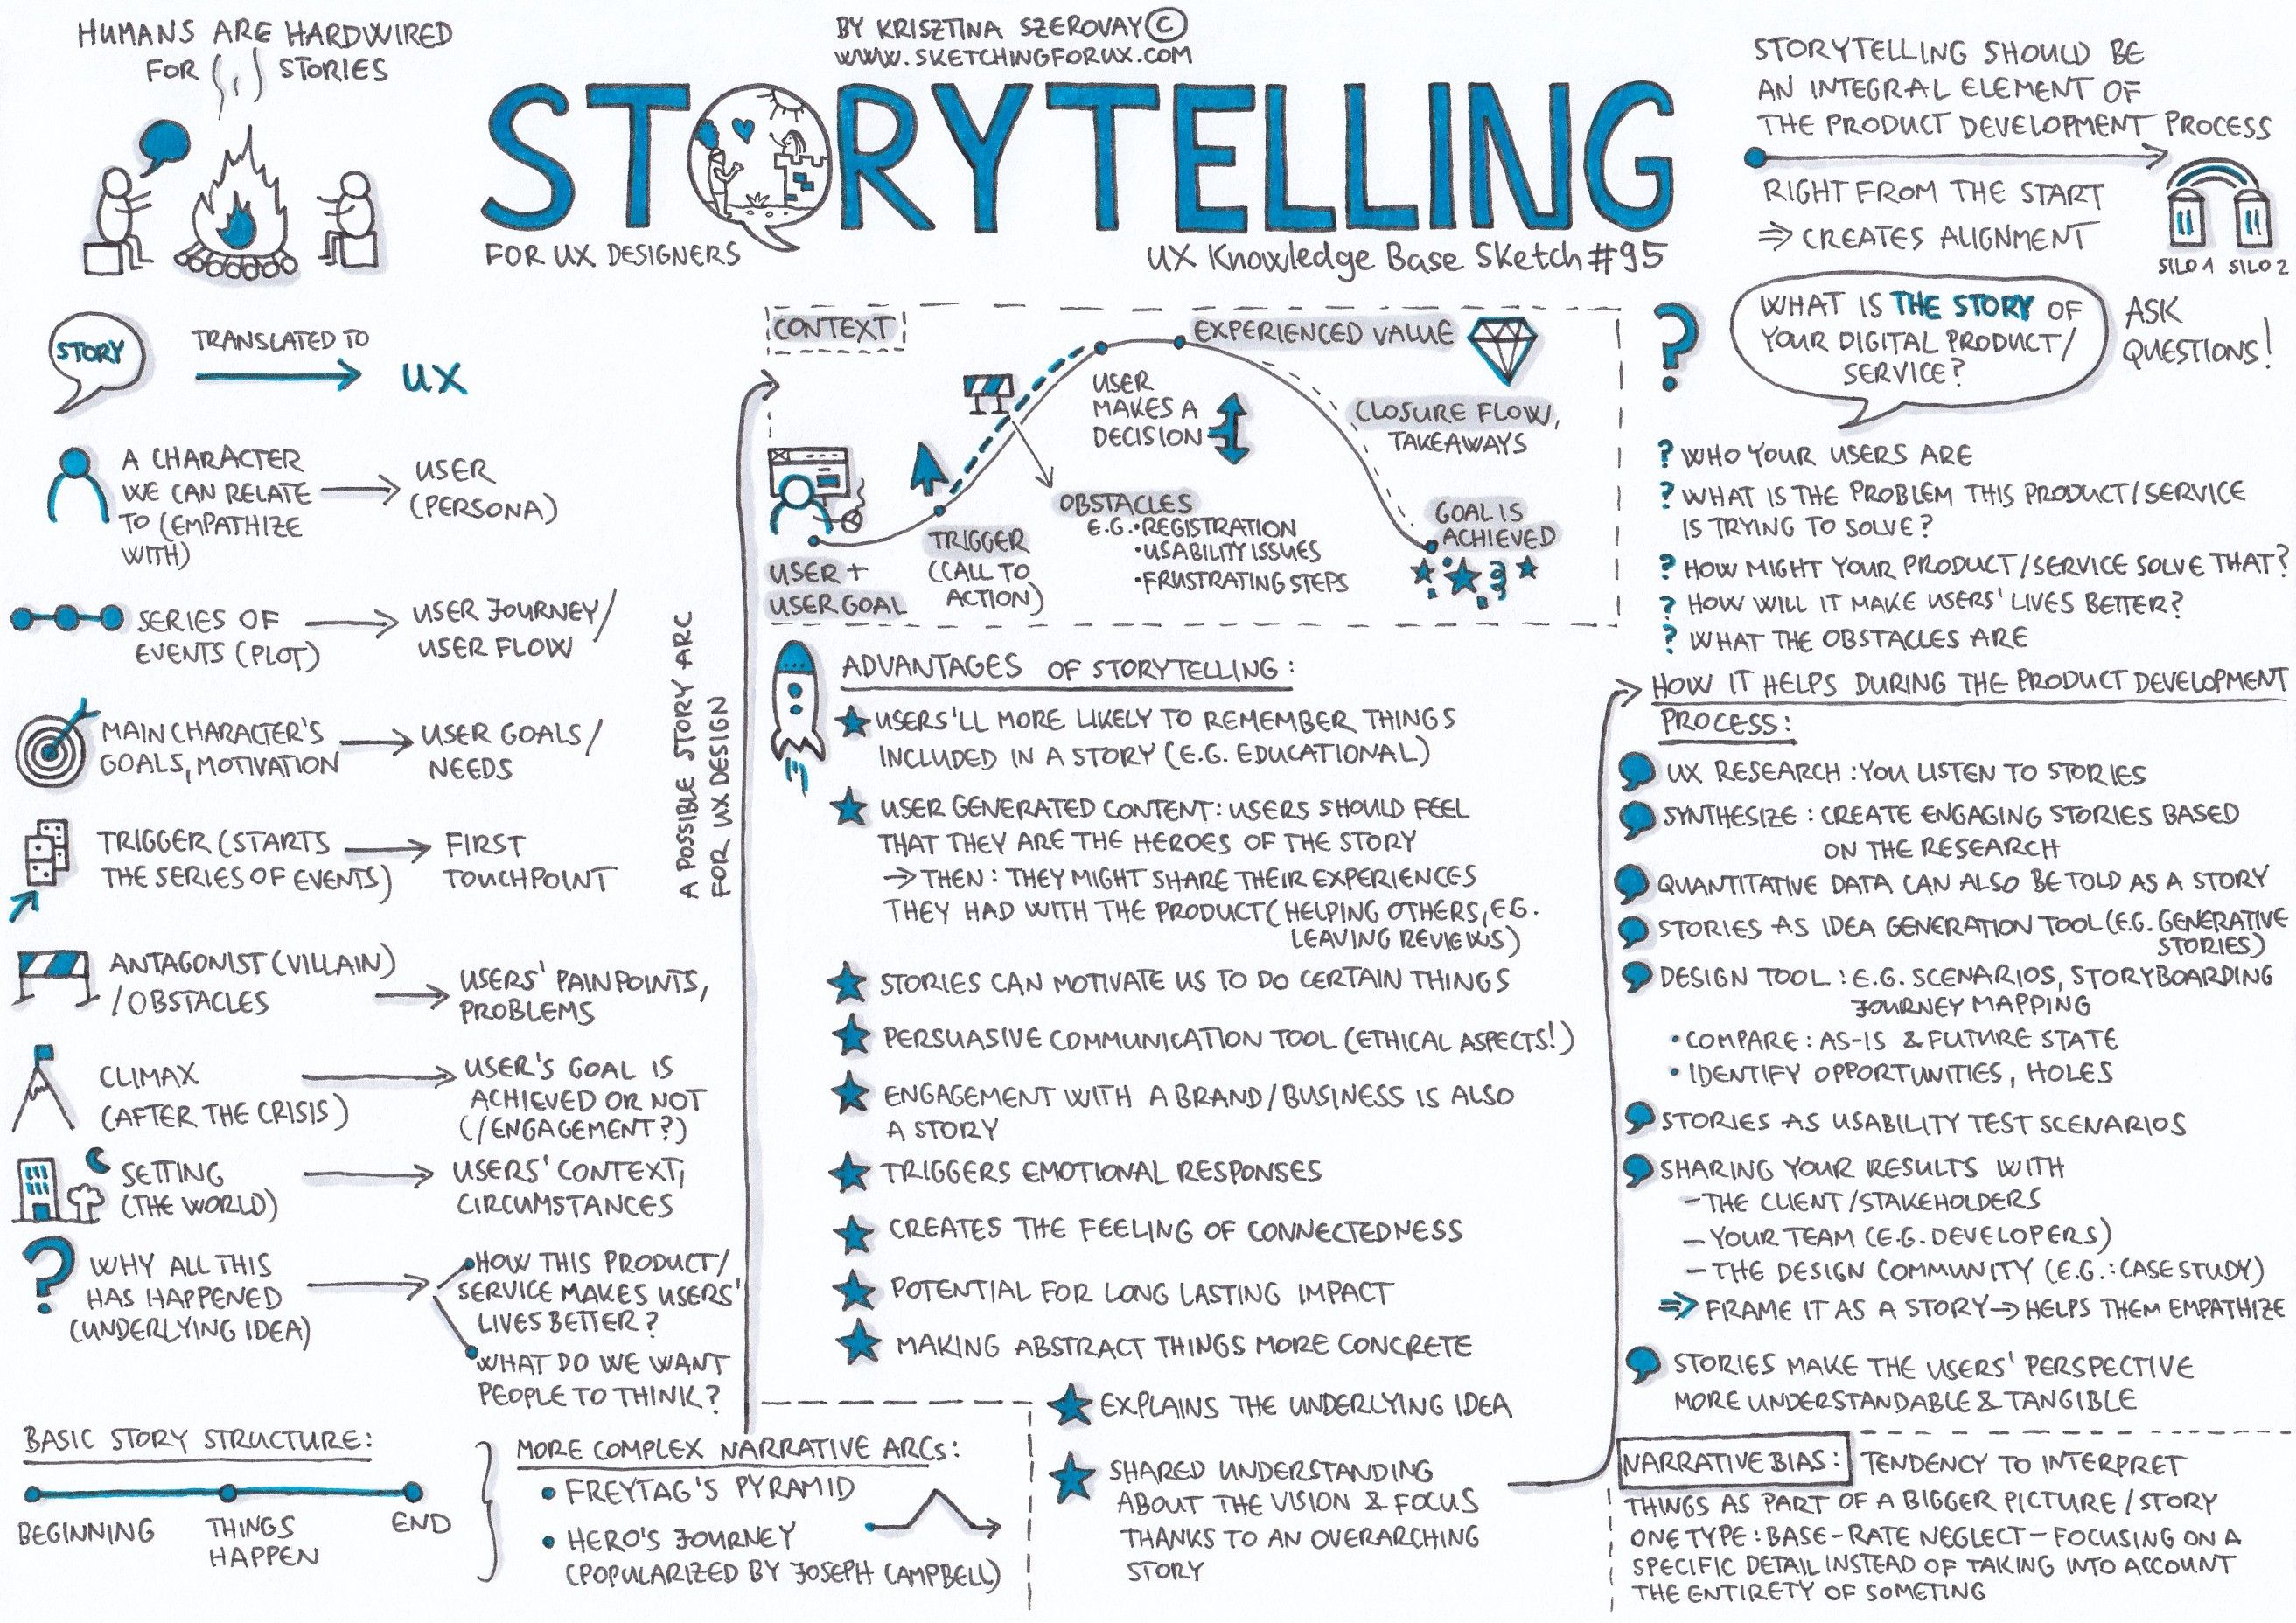 HUMANS ARE HARDWIRED
FOR STORIES
BY KRISZTINA SZEROVAY ©
WWW.SKETCHINGFORUX.COM
STORYTELLING
FOR UX DESIGNERS
UX Knowledge Base Sketch #95
STORYTELLING SHOULD BE
AN INTEGRAL ELEMENT OF
THE PRODUCT DEVELOPMENT PROCESS
RIGHT FROM THE START
⇒ CREATES ALIGNMENT
SILO 1 SILO 2
STORY
TRANSLATED TO
UX
A CHARACTER
WE CAN RELATE
TO (EMPATHIZE
WITH)
USER
(PERSONA)
SERIES OF
EVENTS (PLOT)
USER JOURNEY/
USER FLOW
MAIN CHARACTER'S
GOALS, MOTIVATION
USER GOALS/
NEEDS
TRIGGER (STARTS
THE SERIES OF EVENTS)
FIRST
TOUCHPOINT
ANTAGONIST (VILLAIN)
/OBSTACLES
USERS' PAINPOINTS,
PROBLEMS
CLIMAX
(AFTER THE CRISIS)
USER'S GOAL IS
ACHIEVED OR NOT
(/ENGAGEMENT?)
SETTING
(THE WORLD)
USERS' CONTEXT,
CIRCUMSTANCES
WHY ALL THIS
HAS HAPPENED
(UNDERLYING IDEA)
HOW THIS PRODUCT/
SERVICE MAKES USERS'
LIVES BETTER?
WHAT DO WE WANT
PEOPLE TO THINK?
BASIC STORY STRUCTURE:
BEGINNING
THINGS
HAPPEN
END
MORE COMPLEX NARRATIVE ARCS:
• FREYTAG'S PYRAMID
• HERO'S JOURNEY
(POPULARIZED BY JOSEPH CAMPBELL)
A POSSIBLE STORY ARC
FOR UX DESIGN
CONTEXT
USER +
USER GOAL
TRIGGER
(CALL TO
ACTION)
OBSTACLES
E.G. • REGISTRATION
• USABILITY ISSUES
• FRUSTRATING STEPS
USER
MAKES A
DECISION
EXPERIENCED VALUE
CLOSURE FLOW,
TAKEAWAYS
GOAL IS
ACHIEVED
ADVANTAGES OF STORYTELLING:
USERS'LL MORE LIKELY TO REMEMBER THINGS
INCLUDED IN A STORY (E.G. EDUCATIONAL)
USER GENERATED CONTENT: USERS SHOULD FEEL
THAT THEY ARE THE HEROES OF THE STORY
→ THEN: THEY MIGHT SHARE THEIR EXPERIENCES
THEY HAD WITH THE PRODUCT (HELPING OTHERS, E.G.
LEAVING REVIEWS)
STORIES CAN MOTIVATE US TO DO CERTAIN THINGS
PERSUASIVE COMMUNICATION TOOL (ETHICAL ASPECTS!)
ENGAGEMENT WITH A BRAND/BUSINESS IS ALSO
A STORY
TRIGGERS EMOTIONAL RESPONSES
CREATES THE FEELING OF CONNECTEDNESS
POTENTIAL FOR LONG LASTING IMPACT
MAKING ABSTRACT THINGS MORE CONCRETE
EXPLAINS THE UNDERLYING IDEA
SHARED UNDERSTANDING
ABOUT THE VISION & FOCUS
THANKS TO AN OVERARCHING
STORY
? WHAT IS THE STORY OF
YOUR DIGITAL PRODUCT/
SERVICE?
ASK
QUESTIONS!
? WHO YOUR USERS ARE
? WHAT IS THE PROBLEM THIS PRODUCT/SERVICE
IS TRYING TO SOLVE?
? HOW MIGHT YOUR PRODUCT/SERVICE SOLVE THAT?
? HOW WILL IT MAKE USERS' LIVES BETTER?
? WHAT THE OBSTACLES ARE
HOW IT HELPS DURING THE PRODUCT DEVELOPMENT
PROCESS:
UX RESEARCH: YOU LISTEN TO STORIES
SYNTHESIZE: CREATE ENGAGING STORIES BASED
ON THE RESEARCH
QUANTITATIVE DATA CAN ALSO BE TOLD AS A STORY
STORIES AS IDEA GENERATION TOOL (E.G. GENERATIVE
STORIES)
DESIGN TOOL: E.G. SCENARIOS, STORYBOARDING
JOURNEY MAPPING
• COMPARE: AS-IS & FUTURE STATE
• IDENTIFY OPPORTUNITIES, HOLES
STORIES AS USABILITY TEST SCENARIOS
SHARING YOUR RESULTS WITH
- THE CLIENT/STAKEHOLDERS
- YOUR TEAM (E.G. DEVELOPERS)
- THE DESIGN COMMUNITY (E.G.: CASE STUDY)
⇒ FRAME IT AS A STORY → HELPS THEM EMPATHIZE
STORIES MAKE THE USERS' PERSPECTIVE
MORE UNDERSTANDABLE & TANGIBLE
NARRATIVE BIAS: TENDENCY TO INTERPRET
THINGS AS PART OF A BIGGER PICTURE/STORY
ONE TYPE: BASE-RATE NEGLECT - FOCUSING ON A
SPECIFIC DETAIL INSTEAD OF TAKING INTO ACCOUNT
THE ENTIRETY OF SOMETING